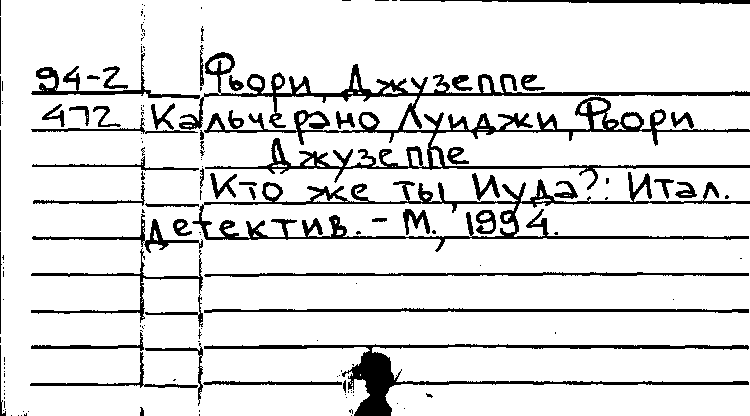 94-2 Фьори, Джузеппе
472 Кальчерано, Луиджи, Фьори
Джузеппе
Кто же ты, Иуда?: Итал.
детектив. - М., 1994.